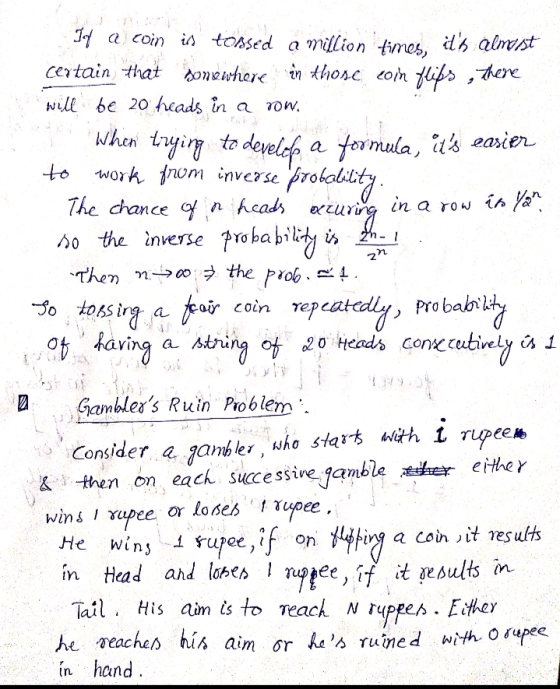 If a coin is tossed a million times, it's almost
certain that somewhere in those coin flips, there
will be 20 heads in a row.
When trying to develop a formula, it's easier
to work from inverse probability.
The chance of n heads occuring in a row is 1/2ⁿ.
so the inverse probability is (2ⁿ-1)/2ⁿ.
Then n→∞ ⇒ the prob. ≃ 1.
So tossing a fair coin repeatedly, probability
of having a string of 20 Heads consecutively is 1
Gambler's Ruin Problem:
Consider a gambler, who starts with i rupees
& then on each successive gamble either
wins 1 rupee or loses 1 rupee.
He wins 1 rupee, if on flipping a coin, it results
in Head and loses 1 ruppee, if it results in
Tail. His aim is to reach N ruppees. Either
he reaches his aim or he's ruined with 0 rupee
in hand.